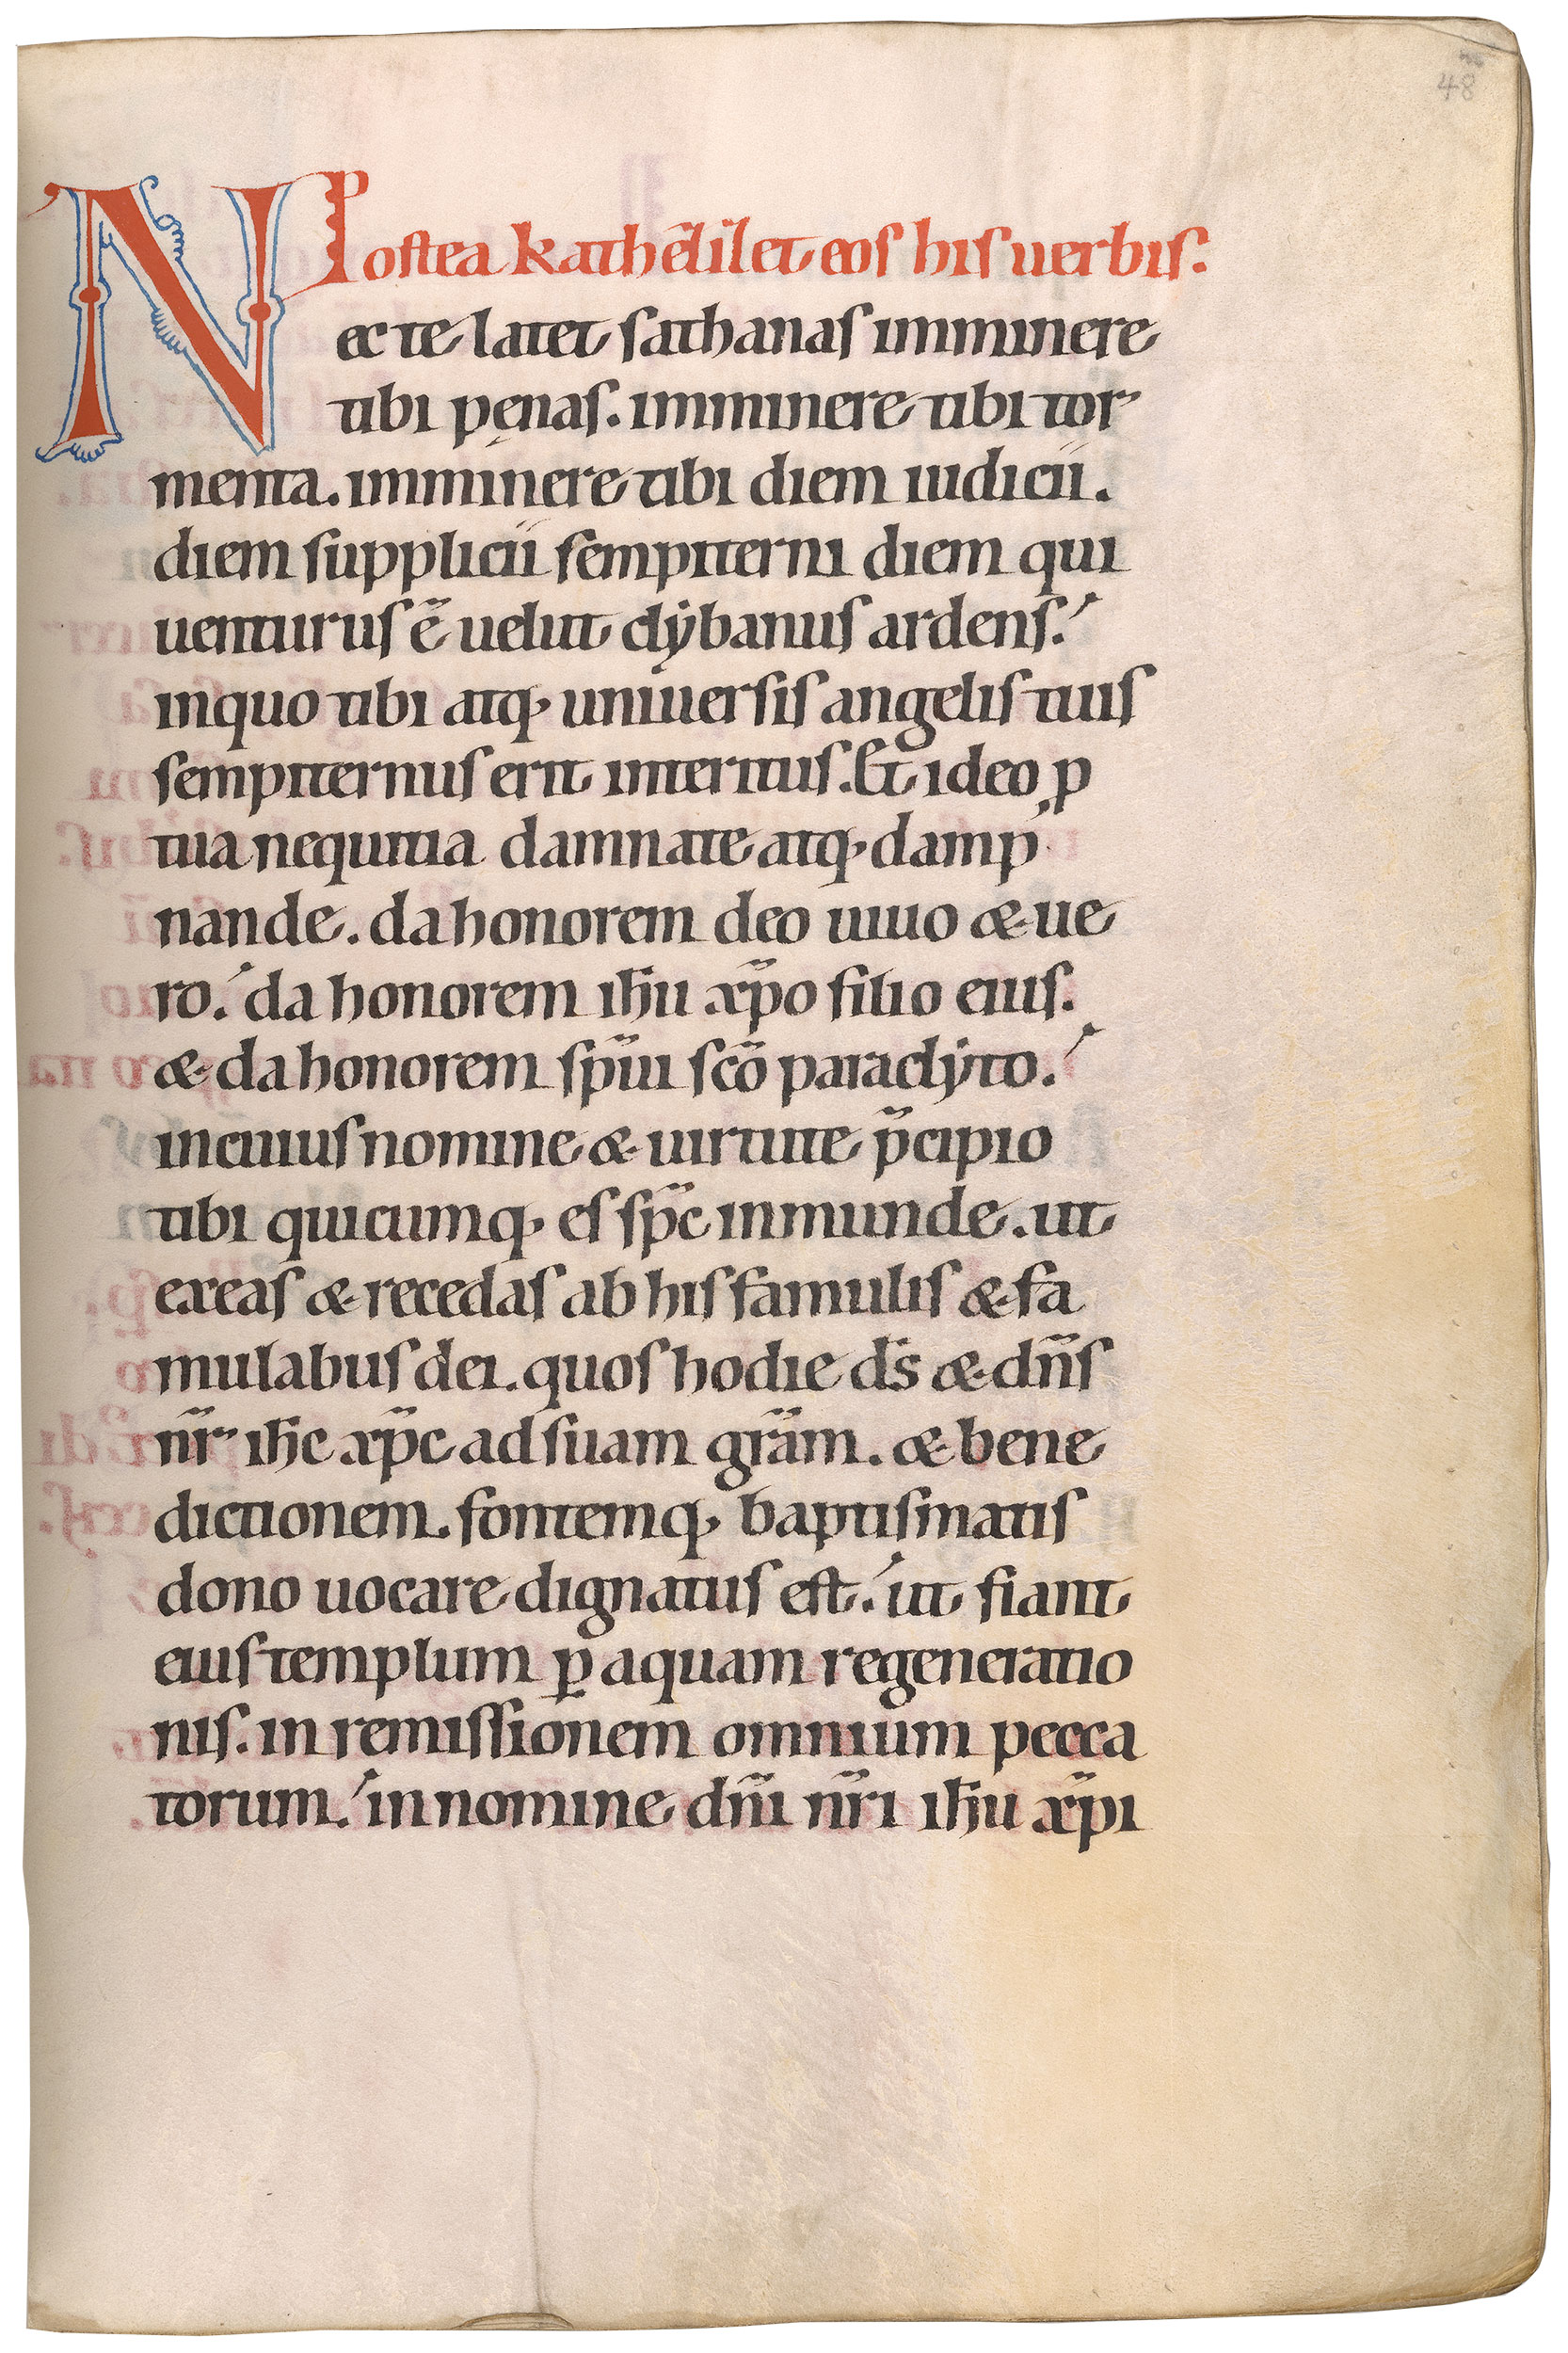 48
Postea kathei̅ʒet eos his uerbis.
Nec te latet sathanas imminere
tibi pęnas. imminere tibi tor
menta. imminere tibi diem iudicii.
diem supplicii sempiterni diem qui
uenturus ē uelut clẏbanus ardens.
inquo tibi atq; uniuersis angelis tuis
sempiternus erit interitus. Et ideo p
tua nequitia damnate atq; damp
nande. da honorem deo uiuo & ue
ro. da honorem ihu̅ xp̅o filio eius.
& da honorem sp̅ui sc̅o paraclẏto.
in cuius nomine & uirtute p̅cipio
tibi quicumq; es sp̅c inmunde. ut
exeas & recedas ab his famulis & fa
mulabus dei. quos hodie d̅s & dn̅s
nr̅ ih̅c xp̅c ad suam gra̅m. & bene
dictionem. fontemq; baptismatis
dono uocare dignatus est. ut fiant
eius templum ꝑ aquam regeneratio
nis. in remissionem omnium pecca
torum. in nomine dn̅i nr̅i ih̅u xp̅i